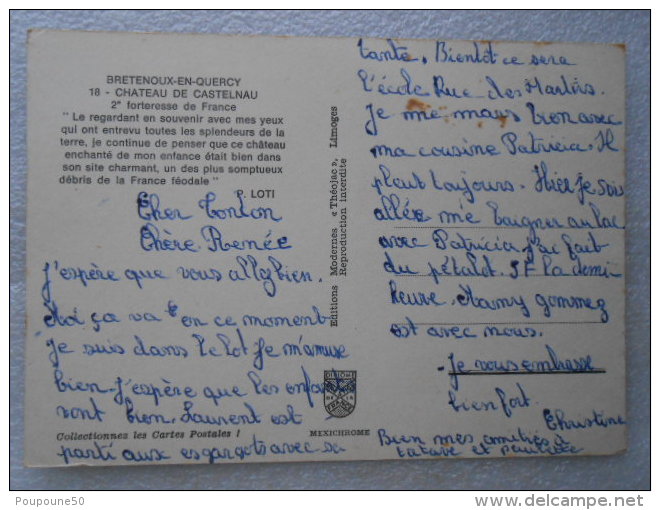 BRETENOUX-EN-QUERCY
18 - CHATEAU DE CASTELNAU
2e forteresse de France
" Le regardant en souvenir avec mes yeux
qui ont entrevu toutes les splendeurs de la
terre, je continue de penser que ce château
enchanté de mon enfance était bien dans
son site charmant, un des plus somptueux
débris de la France féodale "
P. LOTI
Cher Tonton
Chère Renée
J'espère que vous allez bien.
Moi ça va en ce moment
Je suis dans le lot Je m'amuse
bien. J'espère que les enfants
vont bien. Laurent est
parti aux esgargots avec sa
Collectionnez les Cartes Postales !
Editions Modernes « Théojac », Limoges
Reproduction interdite
DIPLOME
MEXICHROME
tante. Bientôt ce sera
l'école Rue des Martirs.
Je me mars bien avec
ma cousine Patricia. Il
pleut toujours. Hier je suis
allée me baigner au lac
avec Patricia j'ai fait
du pétalot. 5F la demi
heure. Mamy gommez
est avec nous.
Je vous embrasse
bien fort.
Christine
Bien mes amitiés à
tatave et
Poupoune50